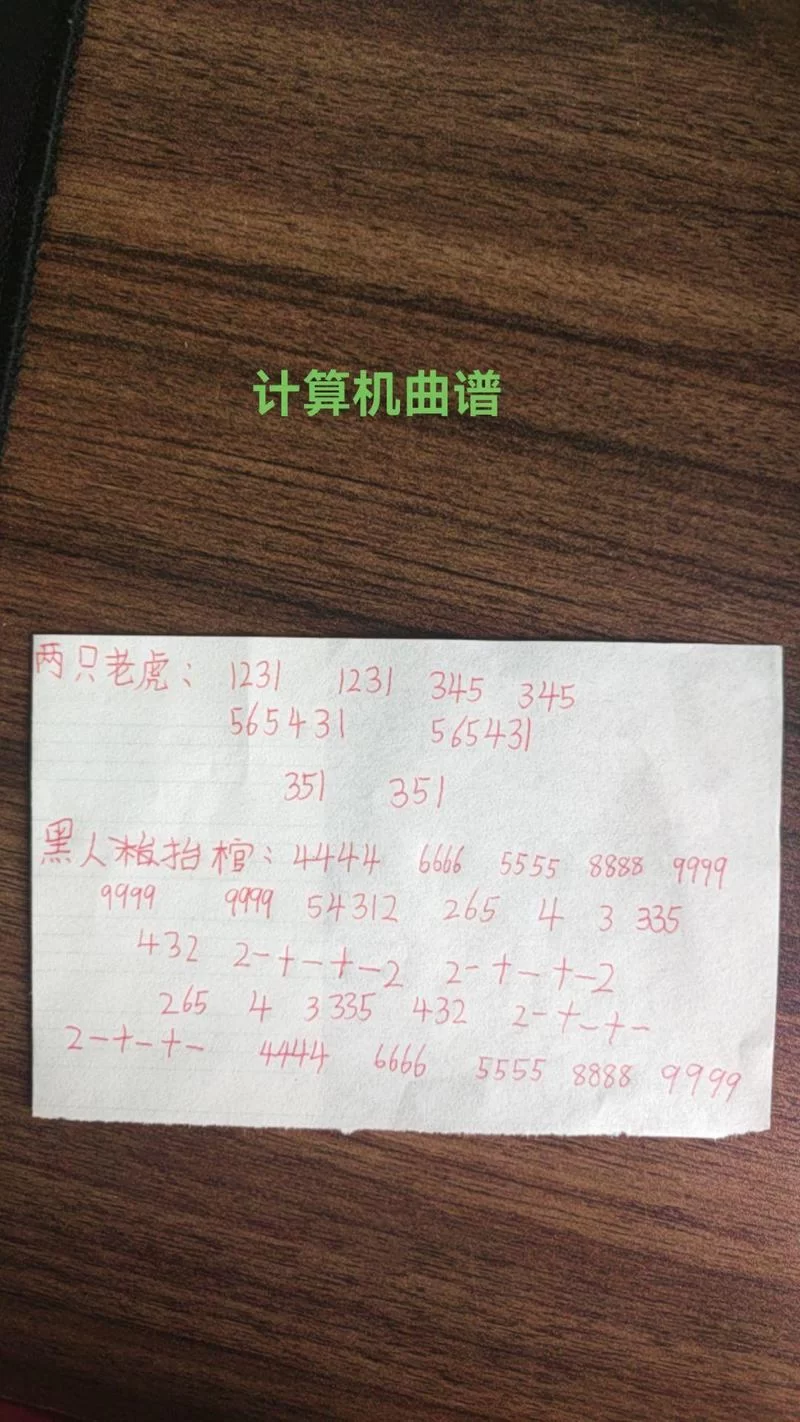 计算机曲谱
两只老虎： 1231 1231 345 345
565431 565431
351 351
黑人抬棺： 4444 6666 5555 8888 9999
9999 9999 54312 265 4 3 335
432 2-+-+-2 2-+-+-2
265 4 3 335 432 2-+-+-
2-+-+- 4444 6666 5555 8888 9999